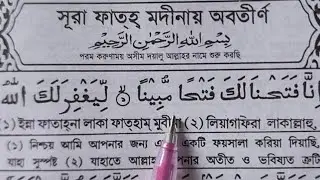 সূরা ফাতহ্ মদীনায় অবতীর্ণ
بِسْمِ اللهِ الرَّحْمٰنِ الرَّحِيْمِ
পরম করুণাময় অসীম দয়ালু আল্লাহর নামে শুরু করছি
اِنَّا فَتَحْنَا لَكَ فَتْحًا مُّبِيْنًا ۝ لِّيَغْفِرَ لَكَ اللهُ
(১) ইন্না ফাতাহ্না লাকা ফাত্হাম্ মুবীনা (২) লিয়াগফিরা লাকাল্লাহু
(১) নিশ্চয় আমি আপনার জন্য একটি ফয়সালা করিয়া দিয়াছি,
যাহা সুস্পষ্ট (২) যাহাতে আল্লাহ আপনার অতীত ও ভবিষ্যত ক্রটি